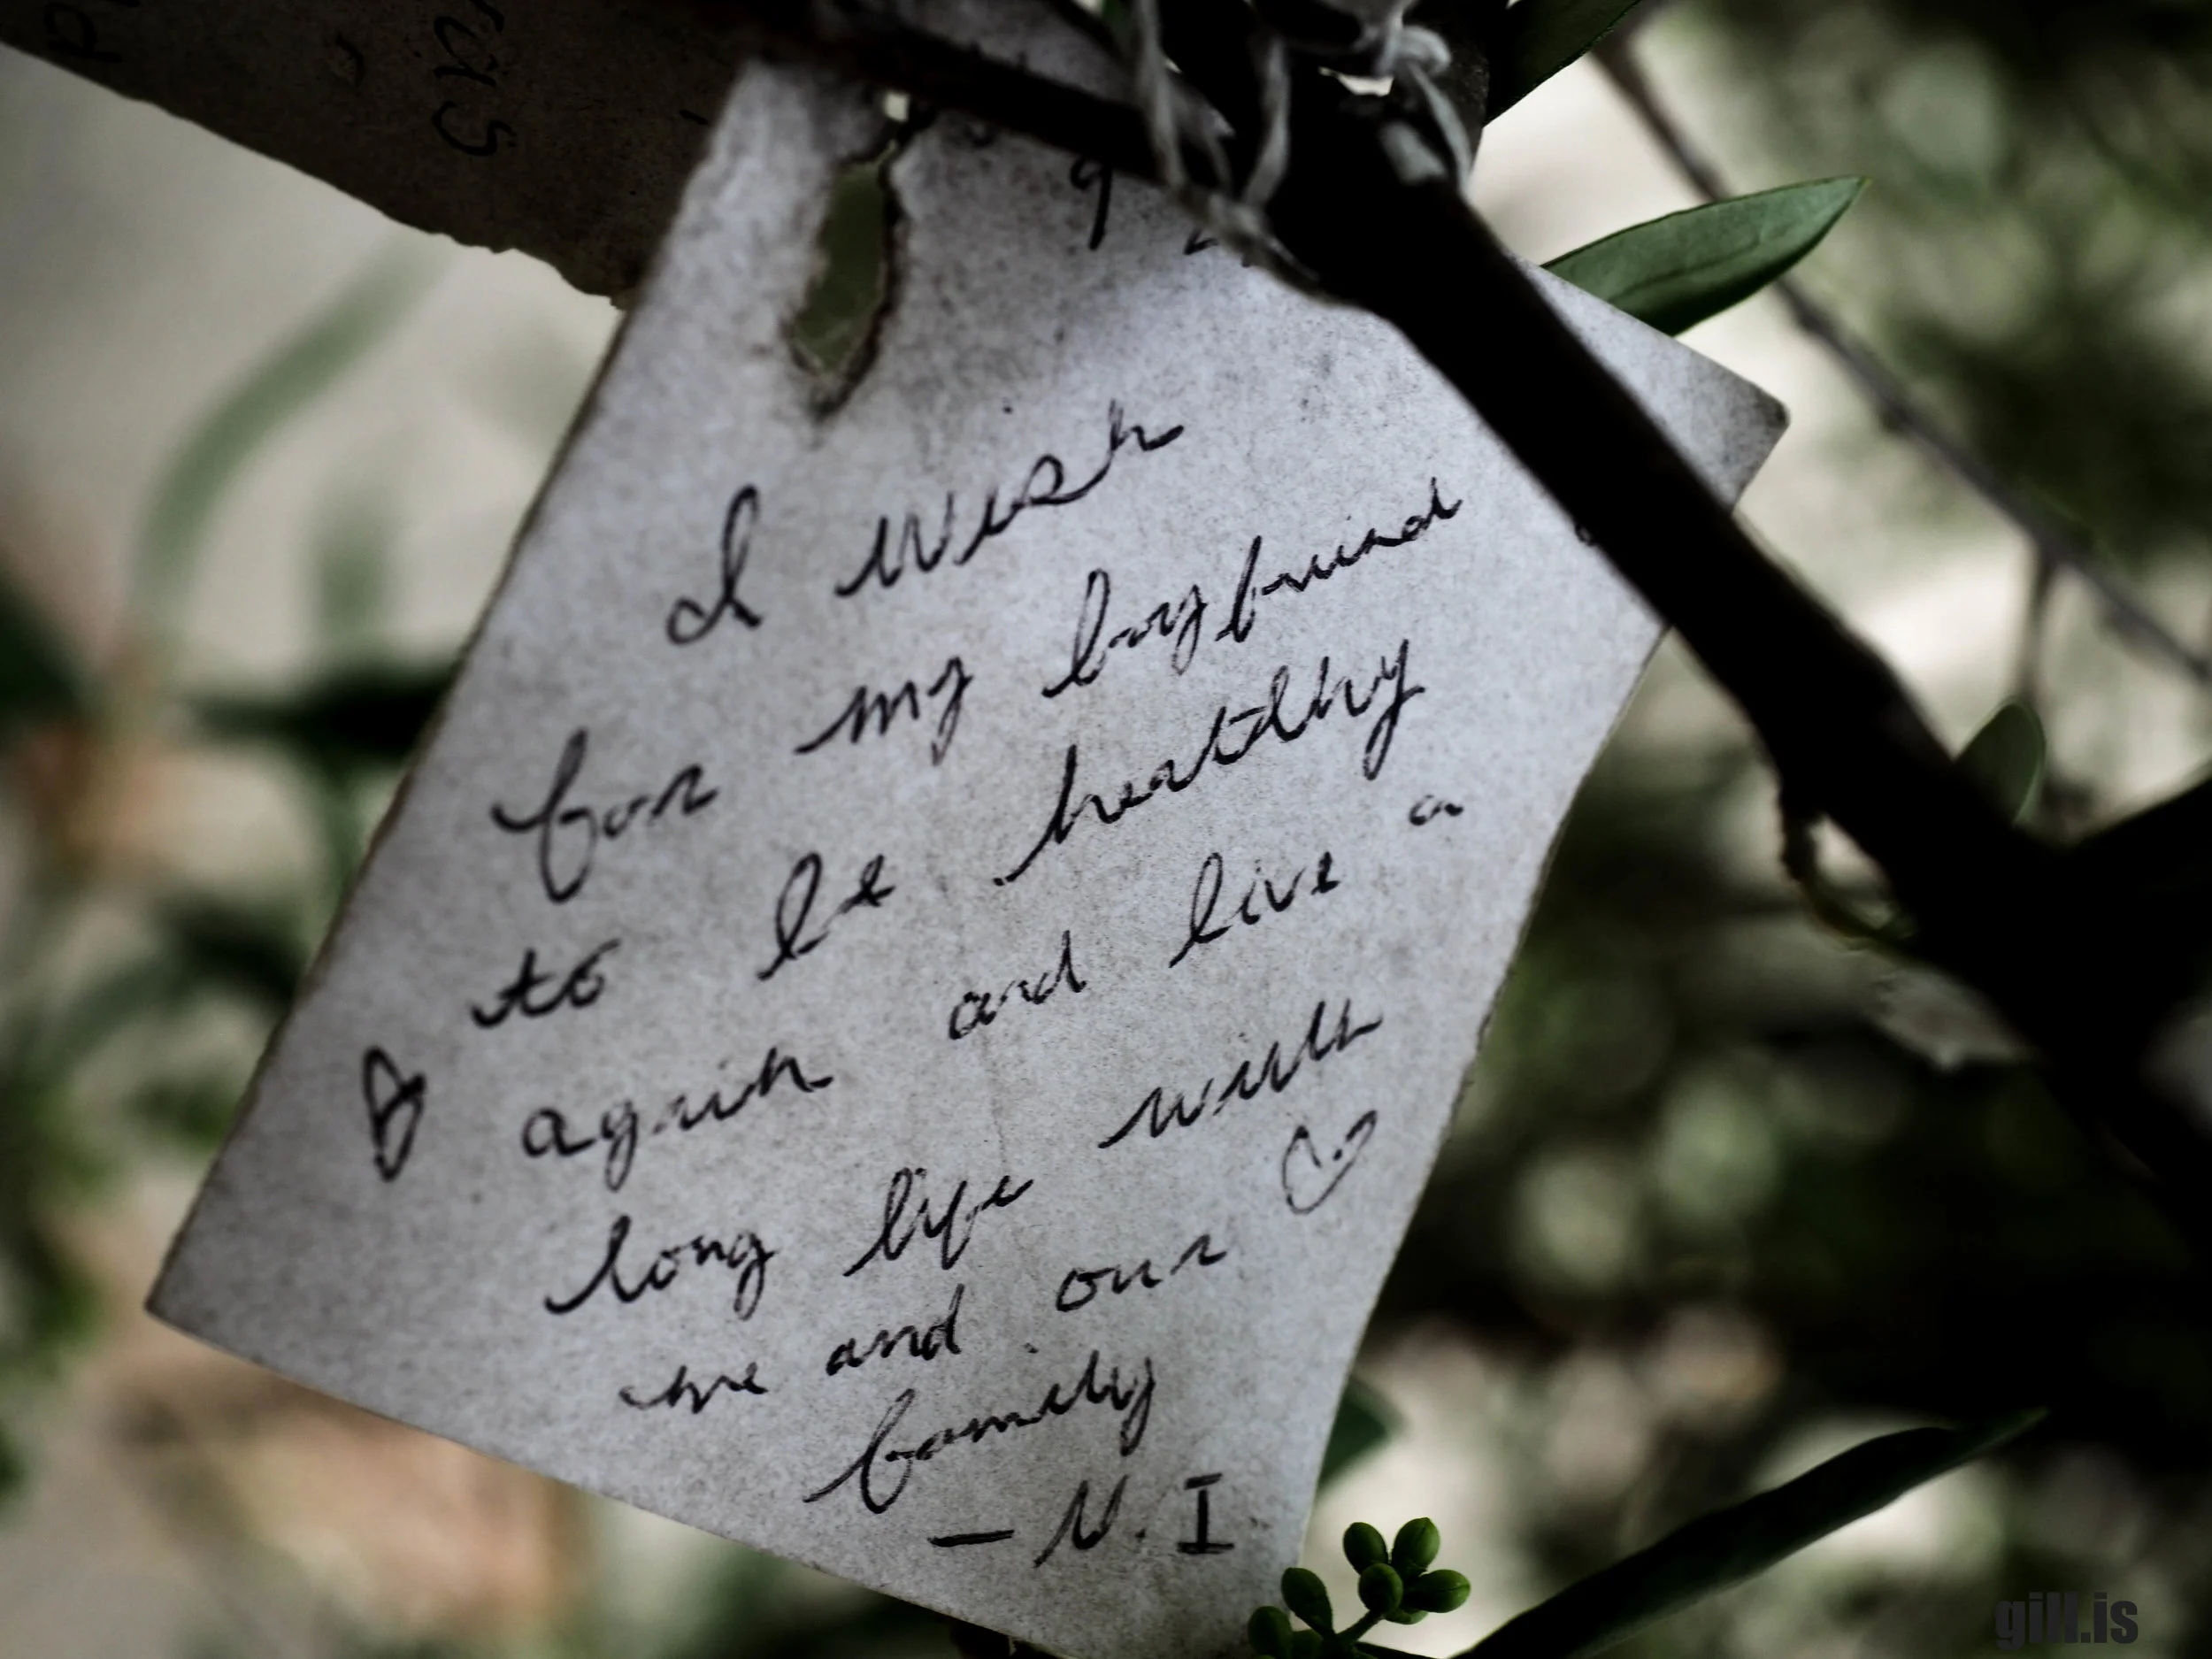 I wish
for my boyfriend
to be heatlhy
again and live a
long life with
me and our
family
— N. I
gill.is